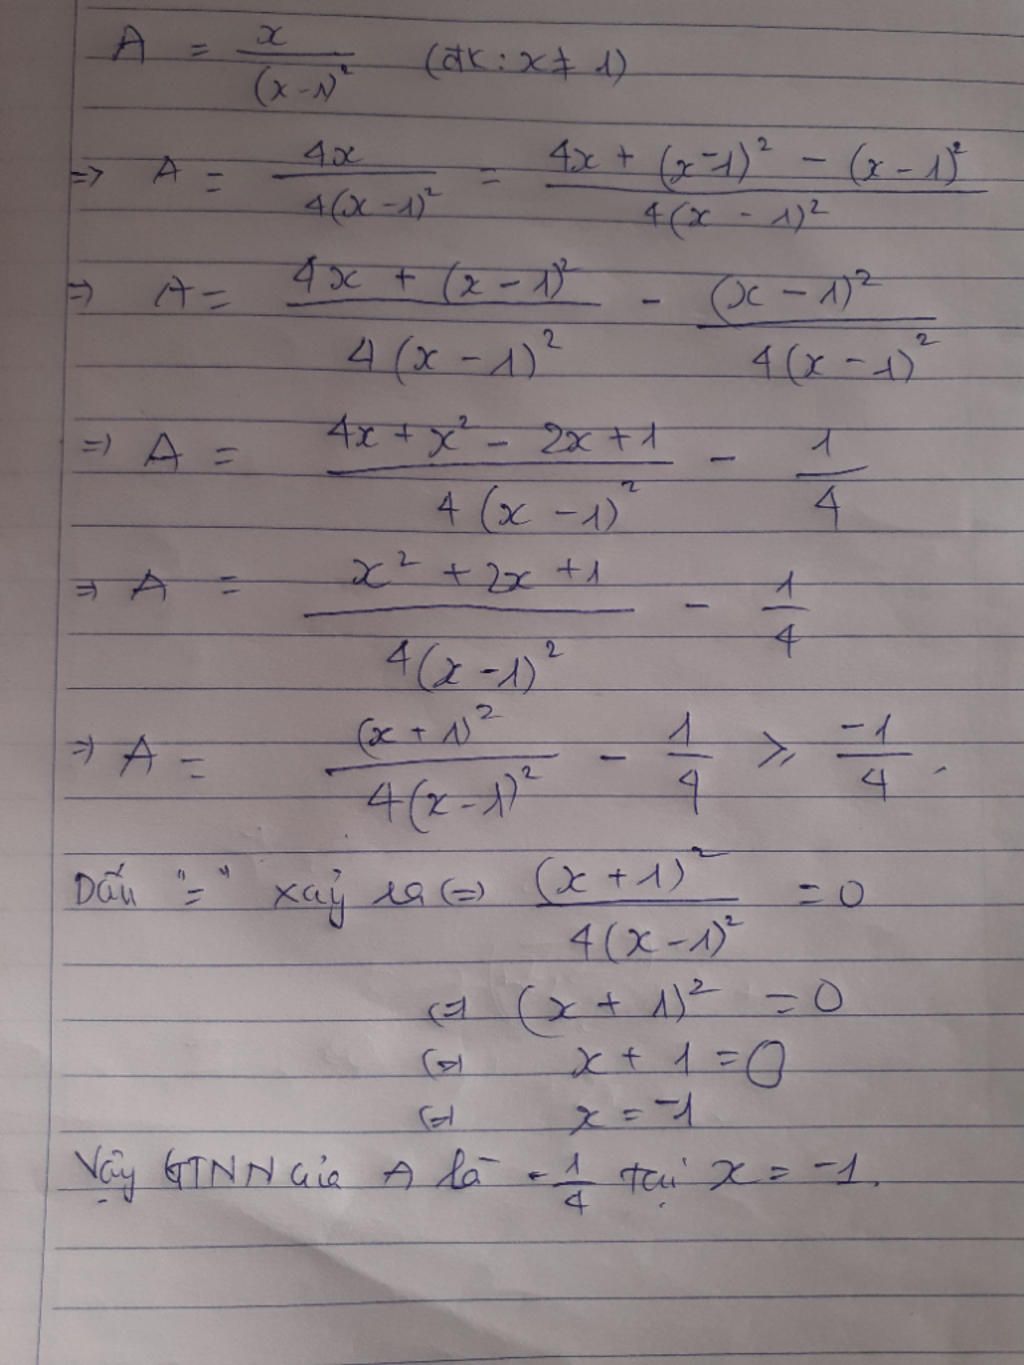 A = x/(x-1)² (đk: x ≠ 1)
=> A = 4x/4(x-1)² = (4x + (x-1)² - (x-1)²)/4(x-1)²
=> A = (4x + (x-1)²)/4(x-1)² - (x-1)²/4(x-1)²
=> A = (4x + x² - 2x + 1)/4(x-1)² - 1/4
=> A = (x² + 2x + 1)/4(x-1)² - 1/4
=> A = (x+1)²/4(x-1)² - 1/4 ≥ -1/4.
Dấu "=" xảy ra <=> (x+1)²/4(x-1)² = 0
<=> (x+1)² = 0
<=> x + 1 = 0
<=> x = -1
Vậy GTNN của A là -1/4 tại x = -1.